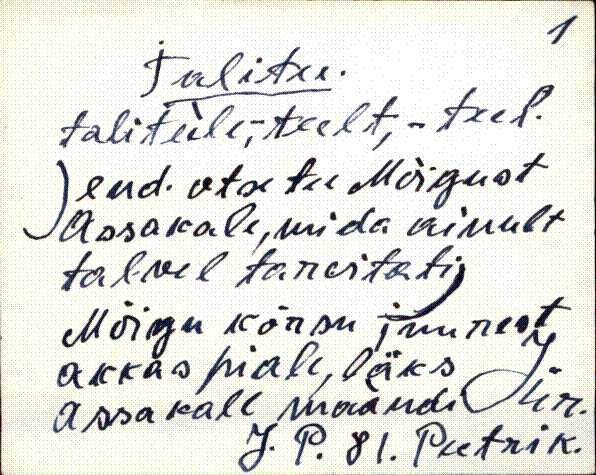 1
Talitee.
taliteele, -teelt, -teel.
) end. otse tee Mõigust
Assakale, mida ainult
talvel tarvitati)
Mõigu kõrsu juurest
akkas piale, läks
Assakale maandi Jür.
J. P. 81. Peetrik.